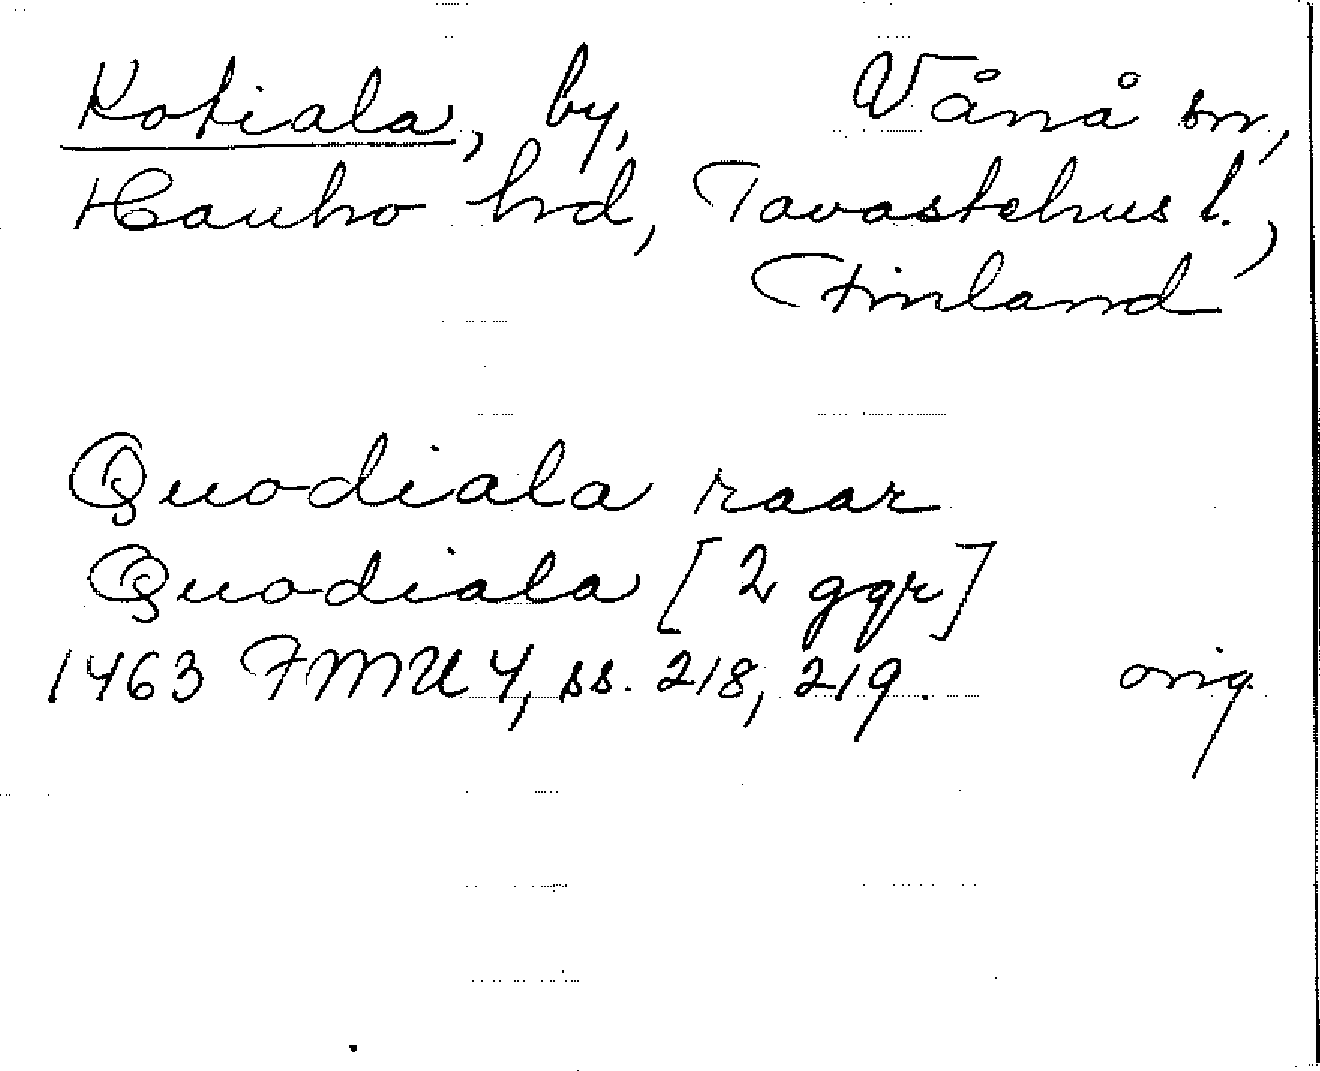 Kotiala, by, Vånå sn,
Hauho hd, Tavastehus l.,
Finland
Quodiala raar
Quodiala [2 ggr]
1463 FMU 4, ss. 218, 219. orig.